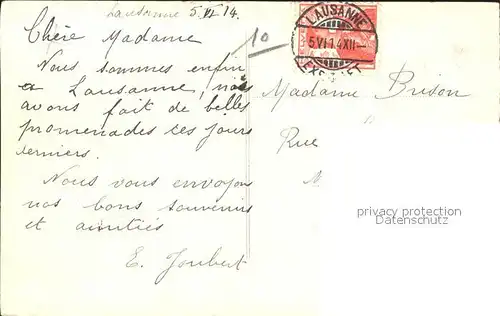 Lausanne 5.VI.14.
Chère Madame
Nous sommes enfin
a Lausanne, nous
avons fait de belles
promenades ces jours
derniers.
Nous vous envoyons
nos bons souvenirs
et amitiés
E. Joubert
10
LAUSANNE
5.VI.14.XII
Madame Brison
Rue
privacy protection